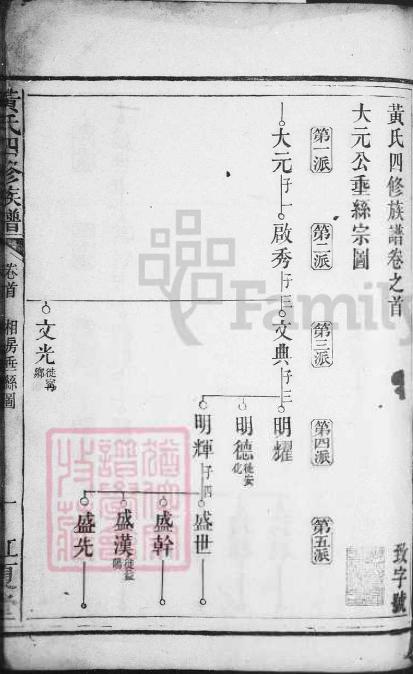 黃氏四修族譜卷之首
致字號
大元公垂絲宗圖
第一派
第二派
第三派
第四派
第五派
大元 子一
啟秀 子三
文典 子三
明耀
明德 徙安化
文光 徙寧鄉
明輝 子四
盛世
盛幹
盛漢 徙益陽
盛先
黃氏四修族譜
卷首
湘房垂絲圖
一
江夏堂
Family